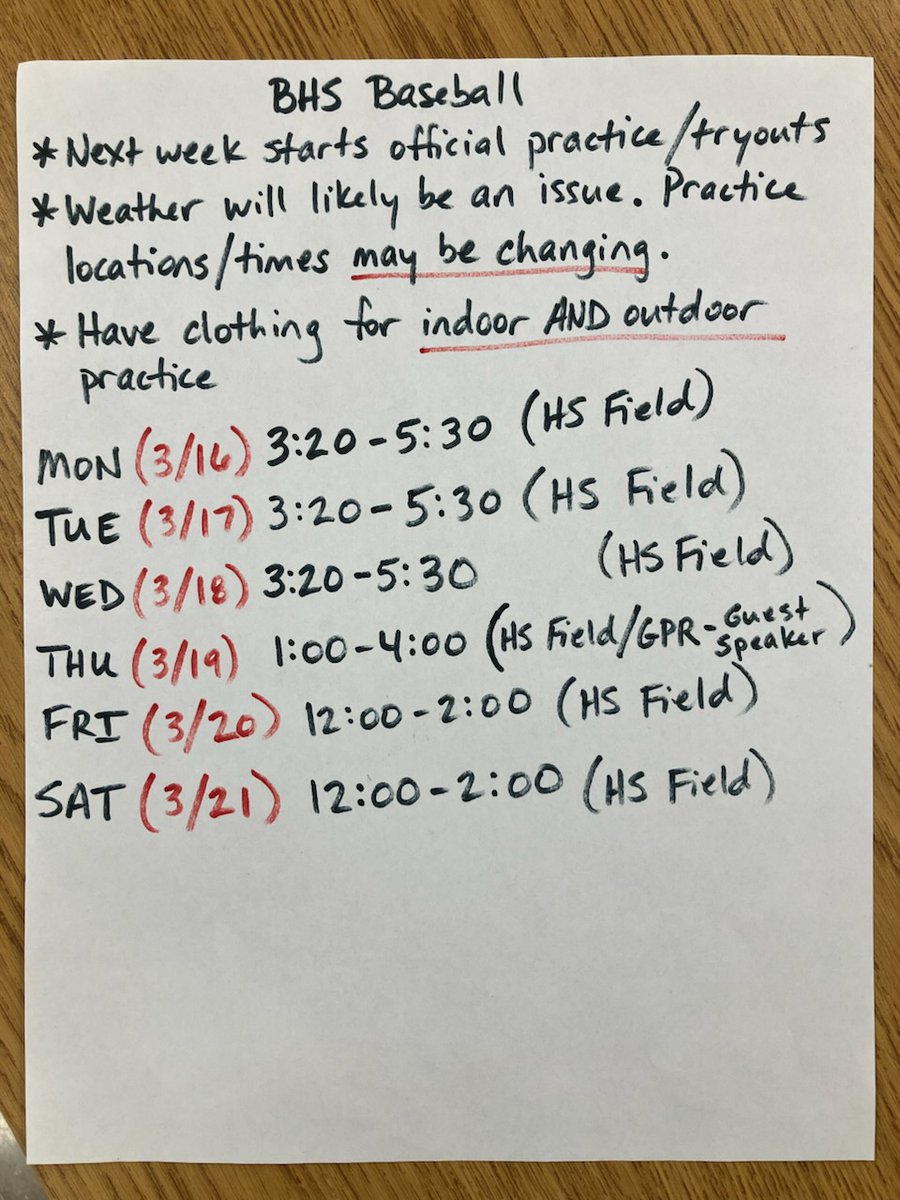 BHS Baseball
* Next week starts official practice/tryouts
* Weather will likely be an issue. Practice
locations/times may be changing.
* Have clothing for indoor AND outdoor
practice
MON (3/16) 3:20-5:30 (HS Field)
TUE (3/17) 3:20-5:30 (HS Field)
WED (3/18) 3:20-5:30 (HS Field)
THU (3/19) 1:00-4:00 (HS Field/GPR-Guest
Speaker)
FRI (3/20) 12:00-2:00 (HS Field)
SAT (3/21) 12:00-2:00 (HS Field)